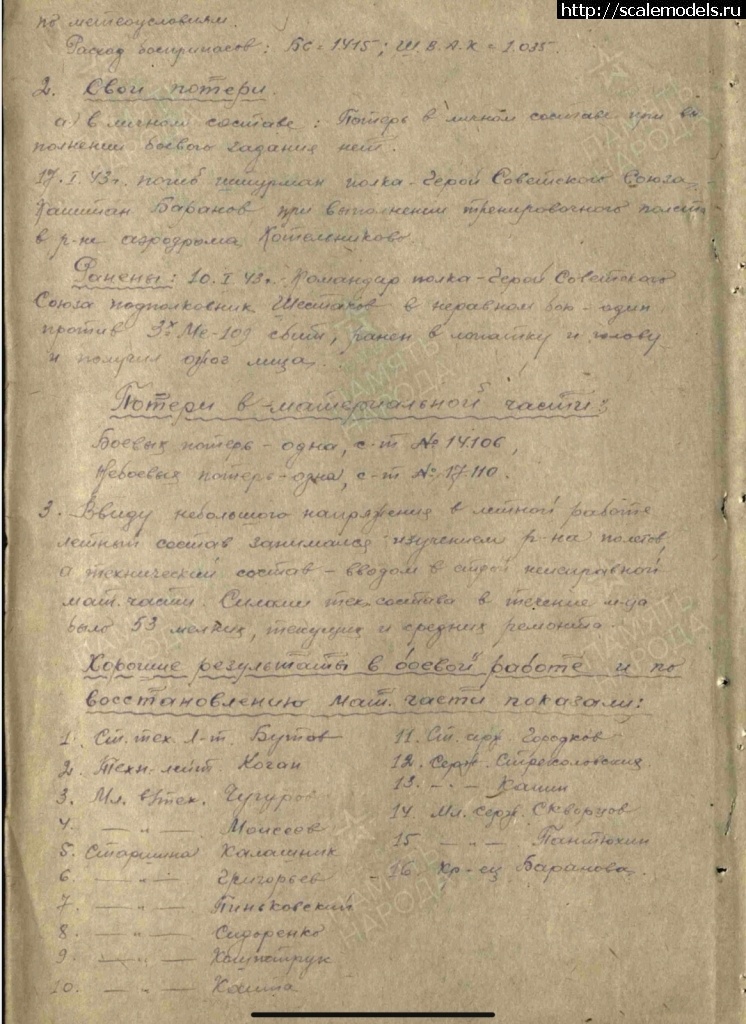 http://scalemodels.ru
по метеоусловиям.
Расход боеприпасов: БС = 1415; ШВАК = 1035.
2. Свои потери.
а) в личном составе: Потерь в личном составе при вы
полнении боевого задания нет.
17.I.43г. погиб штурман полка - Герой Советского Союза
Капитан Баранов при выполнении тренировочного полета
в р-не аэродрома Котельниково
Ранены: 10.I 43г. Командир полка - Герой Советского
Союза подполковник Шестаков в неравном бою - один
против 3х Ме-109 сбит, ранен в лопатку и голову
и получил ожог лица.
Потери в материальной части:
Боевых потерь - одна, с-т № 14106,
Небоевых потерь - одна, с-т № 17110.
3. Ввиду небольшого напряжения в летной работе
летный состав занимался изучением р-на полетов,
а технический состав - вводом в строй неисправной
мат. части. Силами тех. состава в течение м-ца
было 53 мелких, текущих и средних ремонта.
Хорошие результаты в боевой работе и по
восстановлению мат. части показали:
1. Ст. тех. л-т. Бутов
2. Техн-лейт. Коган
3. Мл. в/тех. Чугуров
4. — " — Моисеев
5. Старшина Калашник
6 — " — Григорьев
7 — " — Пиньковский
8 — " — Сидоренко
9 — " —
10. — " —
11. Ст. серж. Городков
12. Серж.
13. — " —
14. Мл. серж. Скворцов
15 — " — Пантюхин
16. Кр-ец Баранова.
ПАМЯТЬ НАРОДА